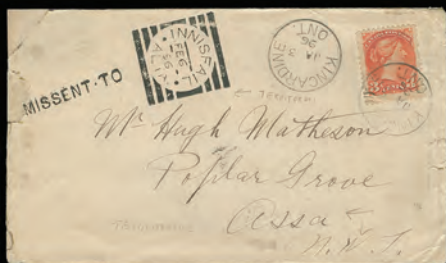 MISSENT·TO
INNISFAIL
FEB 6
96
ALTA
KINCARDINE
JA 3
96
ONT.
Mr Hugh Matheson
Poplar Grove
Assa
N.W.T.